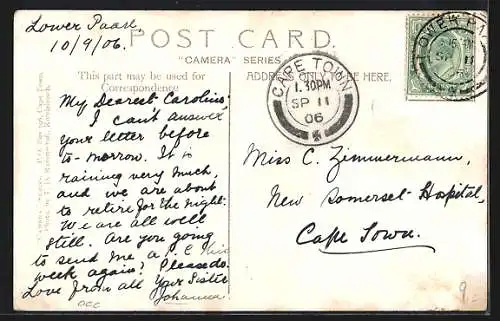 Lower Paarl
10/9/06.
POST CARD.
"CAMERA" SERIES
This part may be used for
Correspondence
ADDRESS ONLY TO BE HERE.
CAPE TOWN
1.30PM
SP 11
06
My Dearest Caroline
I can't answer
your letter before
to-morrow. It is
raining very much,
and we are about
to retire for the night.
We are all well
still. Are you going
to send me a
week again? Please do.
Love from all Your Sister
Johanna.
Miss C. Zimmermann,
New Somerset-Hospital,
Cape Town.